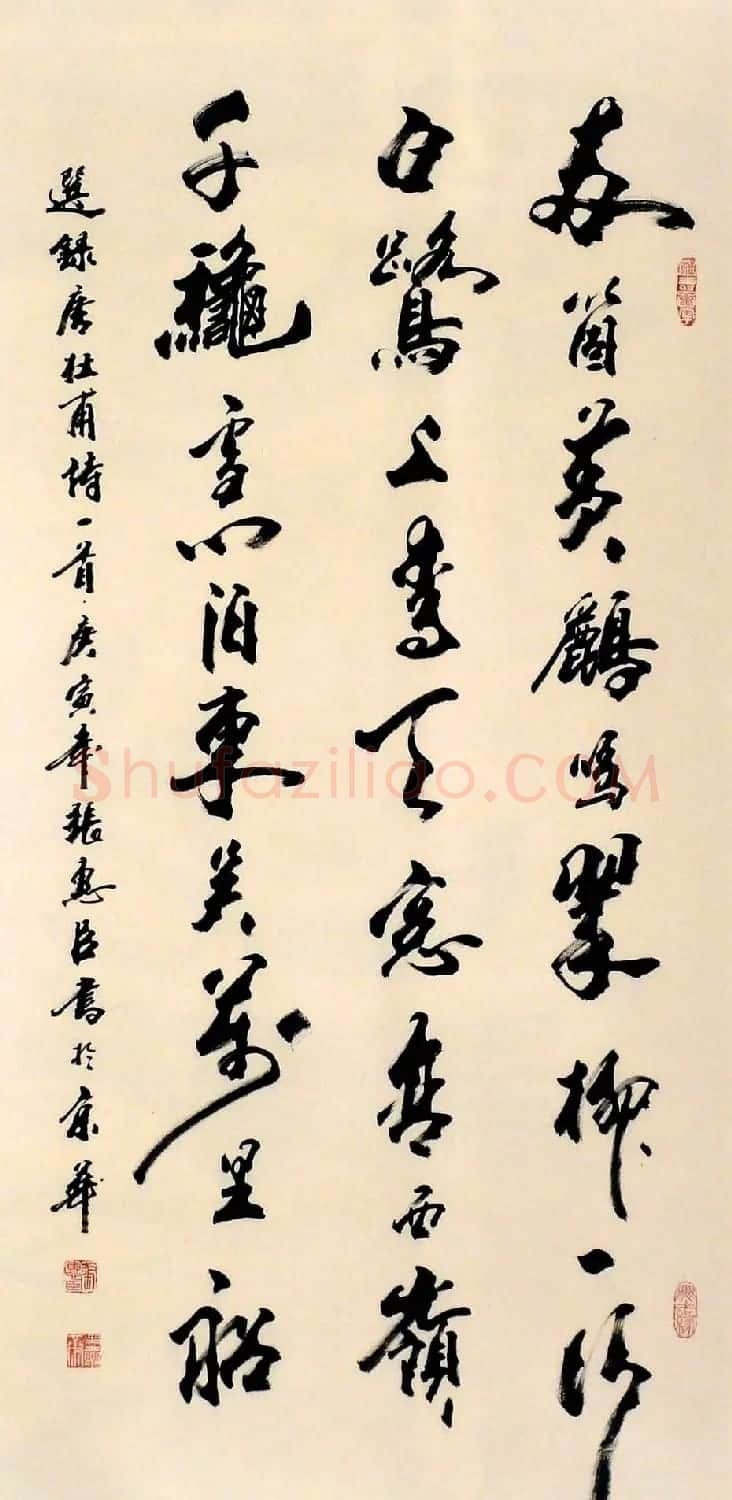 兩箇黃鸝鳴翠柳一行
白鷺上青天窗含西嶺
千龝雪門泊東吳萬里船
選錄唐杜甫詩一首庚寅張惠臣書於京華
Shufaziliao.COM